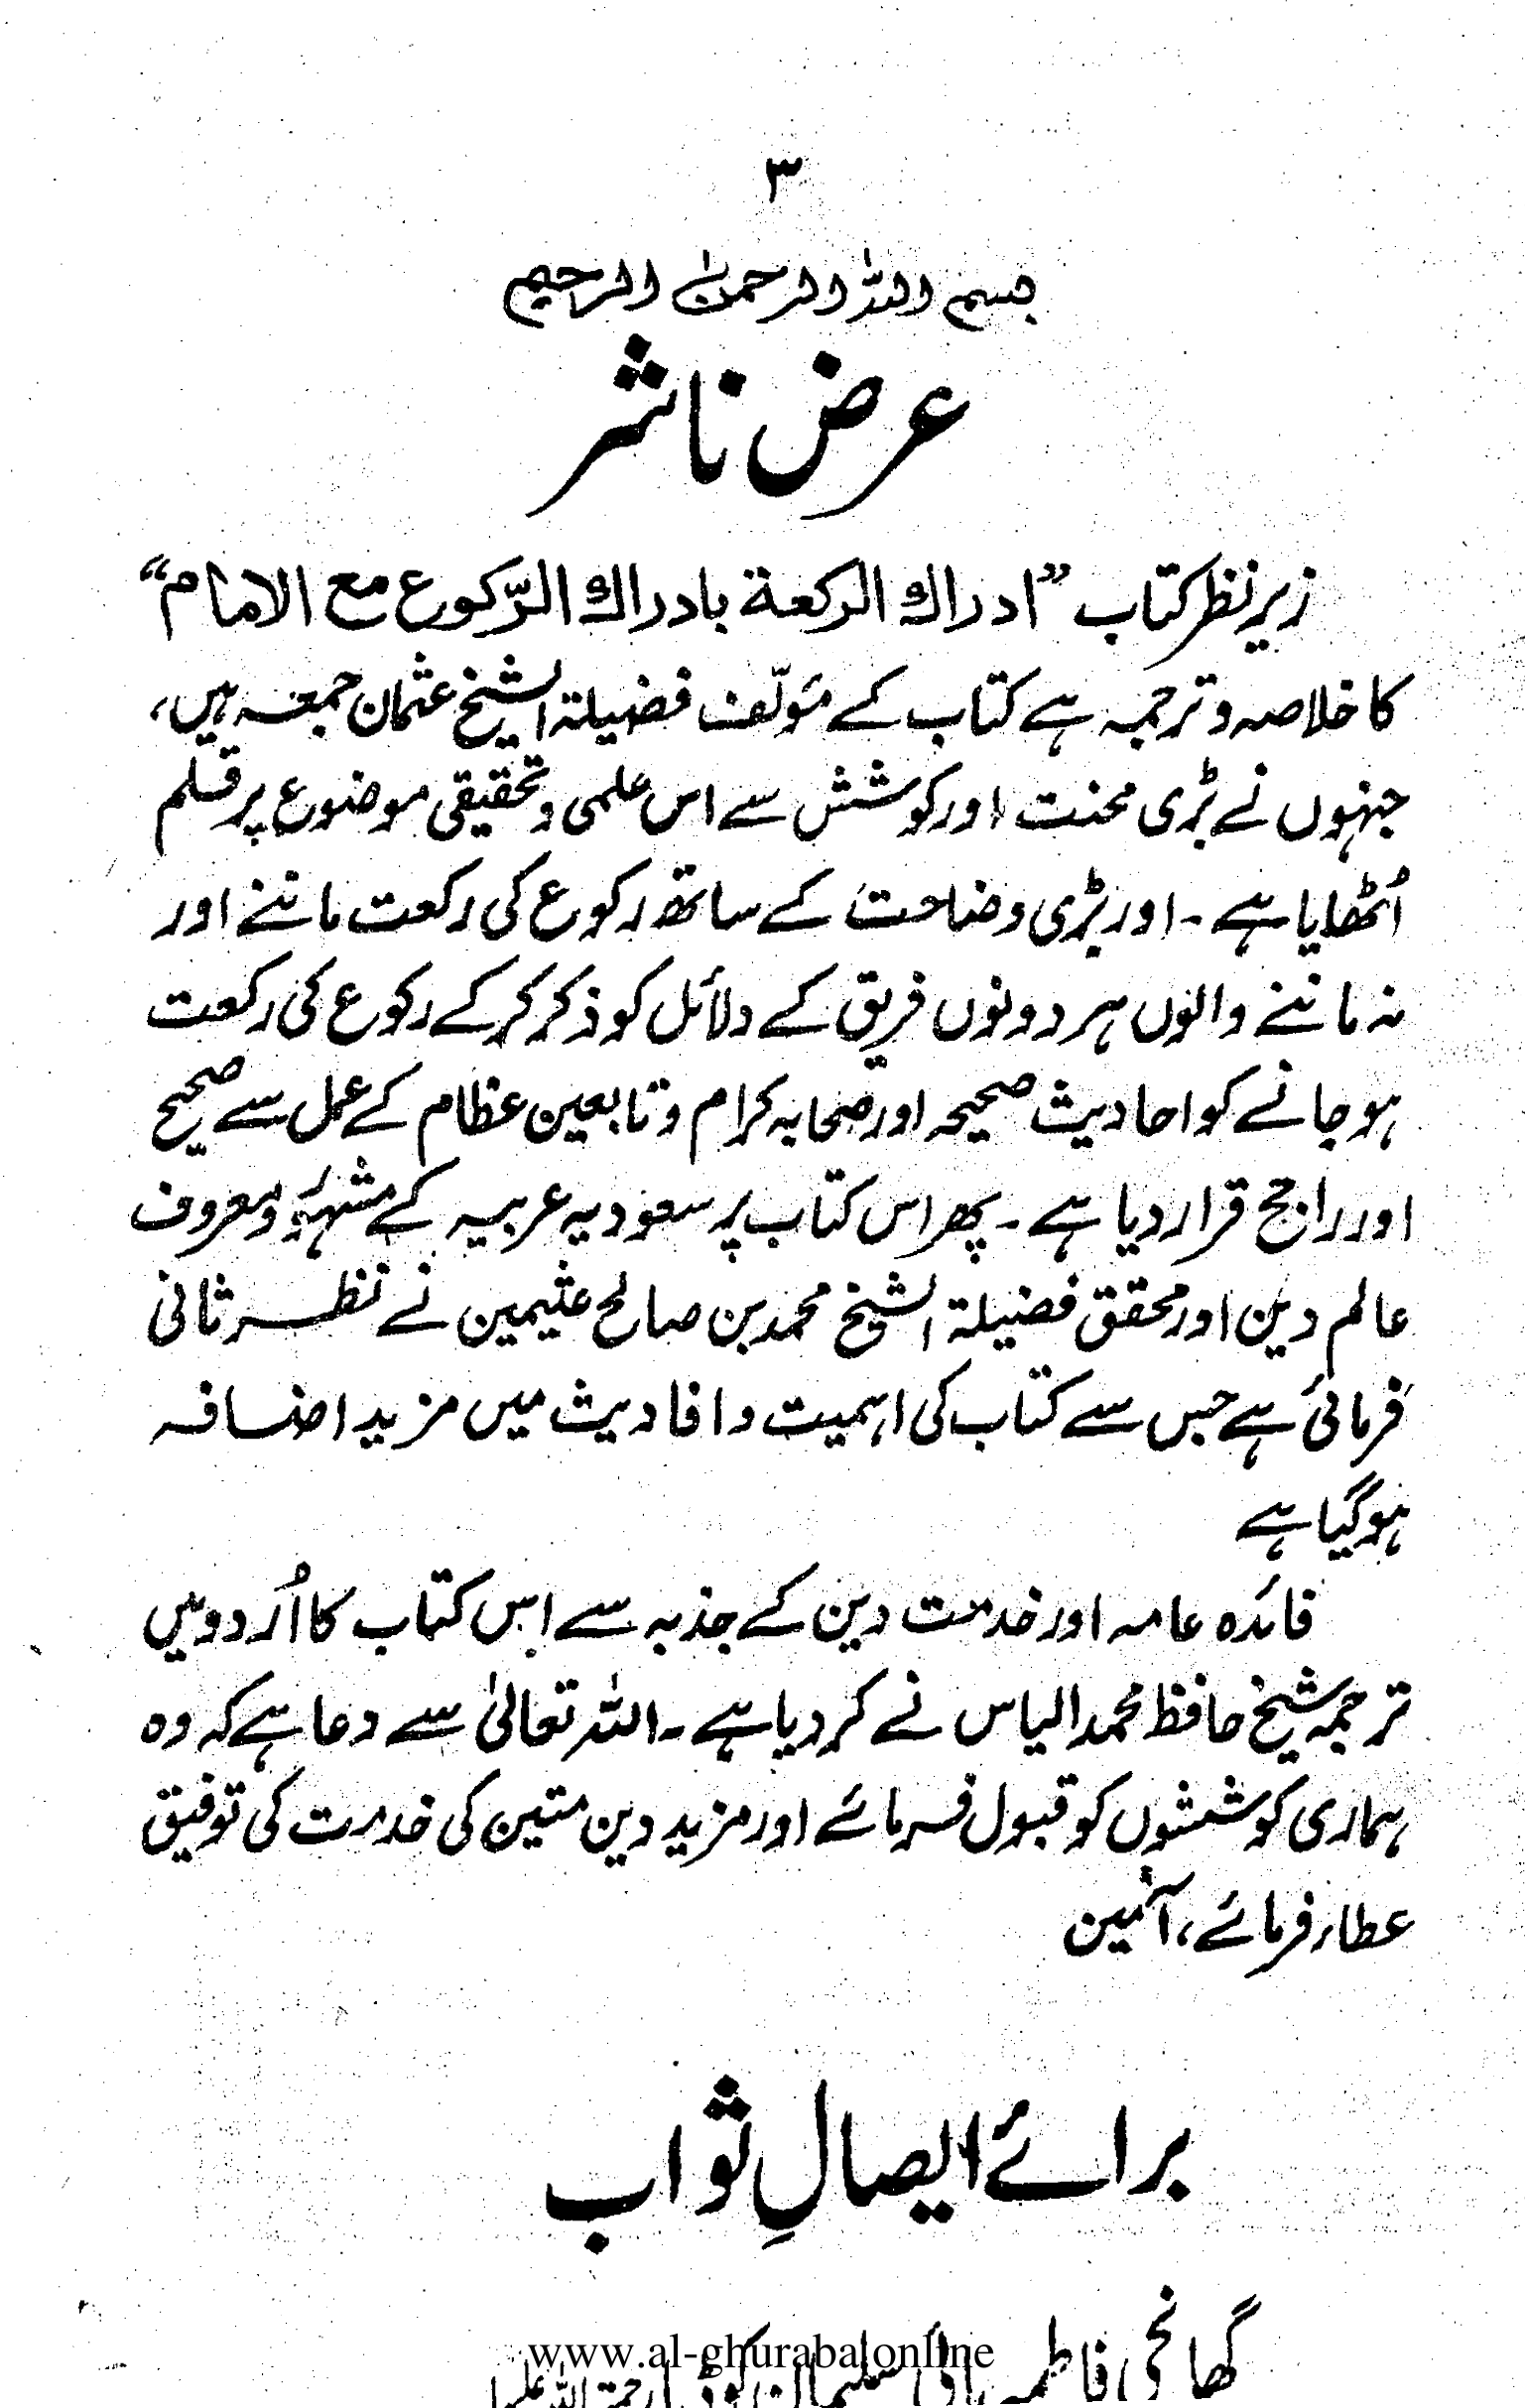 ۳
بسم اللہ الرحمٰن الرحیم
عرض ناشر
زیر نظر کتاب ”ادراك الركعة بادراك الرّكوع مع الامام“
کا خلاصہ و ترجمہ ہے کتاب کے مؤلّف فضیلۃ الشیخ عثمان جمعہ ہیں،
جنہوں نے بڑی محنت اور کوشش سے اس علمی و تحقیقی موضوع پر قلم
اُٹھایا ہے۔ اور بڑی وضاحت کے ساتھ رکوع کی رکعت ماننے اور
نہ ماننے والوں ہر دونوں فریق کے دلائل کو ذکر کرکے رکوع کی رکعت
ہو جانے کو احادیث صحیحہ اور صحابہ کرام و تابعین عظام کے عمل سے صحیح
اور راجح قرار دیا ہے۔ پھر اس کتاب پر سعودیہ عربیہ کے مشہور و معروف
عالم دین اور محقق فضیلۃ الشیخ محمد بن صالح عثیمین نے نظر ثانی
فرمائی ہے جس سے کتاب کی اہمیت و افادیت میں مزید اضافہ
ہوگیا ہے
فائدہ عامہ اور خدمت دین کے جذبہ سے اس کتاب کا اُردو میں
ترجمہ شیخ حافظ محمد الیاس نے کر دیا ہے۔ اللہ تعالیٰ سے دعا ہے کہ وہ
ہماری کوششوں کو قبول فرمائے اور مزید دین متین کی خدمت کی توفیق
عطاء فرمائے، آمین
برائے ایصالِ ثواب
گھانچی فاطمہ بائی سلیمان
www.al-ghurabaionline